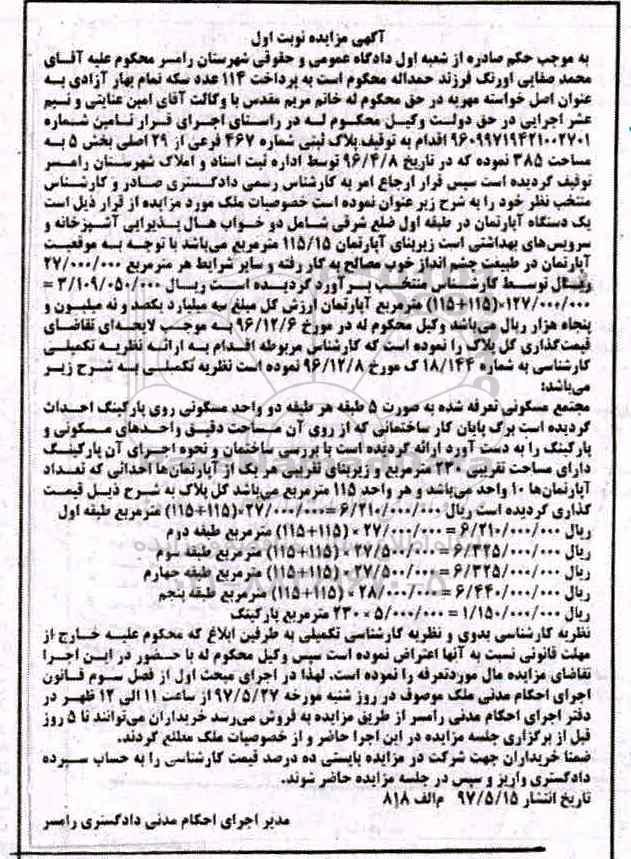 آگهی مزایده نوبت اول
به موجب حکم صادره از شعبه اول دادگاه عمومی و حقوقی شهرستان رامسر محکوم علیه آقای
محمد صفایی اورنگ فرزند حمداله محکوم است به پرداخت ۱۱۴ عدد سکه تمام بهار آزادی به
عنوان اصل خواسته مهریه در حق محکوم له خانم مریم مقدس با وکالت آقای امین عنایتی و نیم
عشر اجرایی در حق دولت وکیل محکوم له در راستای اجرای قرار تامین شماره
۹۶۰۹۹۷۱۹۴۲۱۰۰۲۷۰۱ اقدام به توقیف پلاک ثبتی شماره ۴۶۷ فرعی از ۲۹ اصلی بخش ۵ به
مساحت ۳۸۵ نموده که در تاریخ ۹۶/۴/۸ توسط اداره ثبت اسناد و املاک شهرستان رامسر
توقیف گردیده است سپس قرار ارجاع امر به کارشناس رسمی دادگستری صادر و کارشناس
منتخب نظر خود را به شرح زیر عنوان نموده است خصوصیات ملک مورد مزایده از قرار ذیل است
یک دستگاه آپارتمان در طبقه اول ضلع شرقی شامل دو خواب هال پذیرایی آشپزخانه و
سرویس‌های بهداشتی است زیربنای آپارتمان ۱۱۵/۱۵ مترمربع می‌باشد با توجه به موقعیت
آپارتمان در طبیعت چشم انداز خوب مصالح به کار رفته و سایر شرایط هر مترمربع ۲۷/۰۰۰/۰۰۰
ریال توسط کارشناس منتخب برآورد گردیده است ریال ۳/۱۰۹/۰۵۰/۰۰۰ =
۱۲۷/۰۰۰/۰۰۰×(۱۱۵+۱۱۵) مترمربع آپارتمان ارزش کل مبلغ سه میلیارد یکصد و نه میلیون و
پنجاه هزار ریال می‌باشد وکیل محکوم له در مورخ ۹۶/۱۲/۶ به موجب لایحه‌ای تقاضای
قیمت‌گذاری کل پلاک را نموده است که کارشناس مربوطه اقدام به ارائه نظریه تکمیلی
کارشناسی به شماره ۱۸/۱۴۴ ک مورخ ۹۶/۱۲/۸ نموده است نظریه تکمیلی به شرح زیر
می‌باشد:
مجتمع مسکونی تعرفه شده به صورت ۵ طبقه هر طبقه دو واحد مسکونی روی پارکینگ احداث
گردیده است برگ پایان کار ساختمانی که از روی آن مساحت دقیق واحدهای مسکونی و
پارکینگ را به دست آورد ارائه گردیده است با بررسی ساختمان و نحوه اجرای آن پارکینگ
دارای مساحت تقریبی ۲۳۰ مترمربع و زیربنای تقریبی هر یک از آپارتمان‌ها احداثی که تعداد
آپارتمان‌ها ۱۰ واحد می‌باشد و هر واحد ۱۱۵ مترمربع می‌باشد کل پلاک به شرح ذیل قیمت
گذاری گردیده است ریال ۶/۲۱۰/۰۰۰/۰۰۰=۲۷/۰۰۰/۰۰۰×(۱۱۵+۱۱۵) مترمربع طبقه اول
ریال ۶/۲۱۰/۰۰۰/۰۰۰ = ۲۷/۰۰۰/۰۰۰ × (۱۱۵+۱۱۵) مترمربع طبقه دوم
ریال ۶/۳۲۵/۰۰۰/۰۰۰ = ۲۷/۵۰۰/۰۰۰ × (۱۱۵+۱۱۵) مترمربع طبقه سوم
ریال ۶/۳۲۵/۰۰۰/۰۰۰ = ۲۷/۵۰۰/۰۰۰ × (۱۱۵+۱۱۵) مترمربع طبقه چهارم
ریال ۶/۴۴۰/۰۰۰/۰۰۰ = ۲۸/۰۰۰/۰۰۰ × (۱۱۵+۱۱۵) مترمربع طبقه پنجم
ریال ۱/۱۵۰/۰۰۰/۰۰۰ = ۵/۰۰۰/۰۰۰ × ۲۳۰ مترمربع پارکینگ
نظریه کارشناسی بدوی و نظریه کارشناسی تکمیلی به طرفین ابلاغ که محکوم علیه خارج از
مهلت قانونی نسبت به آنها اعتراض نموده است سپس وکیل محکوم له با حضور در این اجرا
تقاضای مزایده مال موردتعرفه را نموده است. لهذا در اجرای مبحث اول از فصل سوم قانون
اجرای احکام مدنی ملک موصوف در روز شنبه مورخه ۹۷/۵/۲۷ از ساعت ۱۱ الی ۱۲ ظهر در
دفتر اجرای احکام مدنی رامسر از طریق مزایده به فروش می‌رسد خریداران می‌توانند تا ۵ روز
قبل از برگزاری جلسه مزایده در این اجرا حاضر و از خصوصیات ملک مطلع گردند.
ضمنا خریداران جهت شرکت در مزایده بایستی ده درصد قیمت کارشناسی را به حساب سپرده
دادگستری واریز و سپس در جلسه مزایده حاضر شوند.
تاریخ انتشار ۹۷/۵/۱۵ م‌الف ۸۱۸
مدیر اجرای احکام مدنی دادگستری رامسر